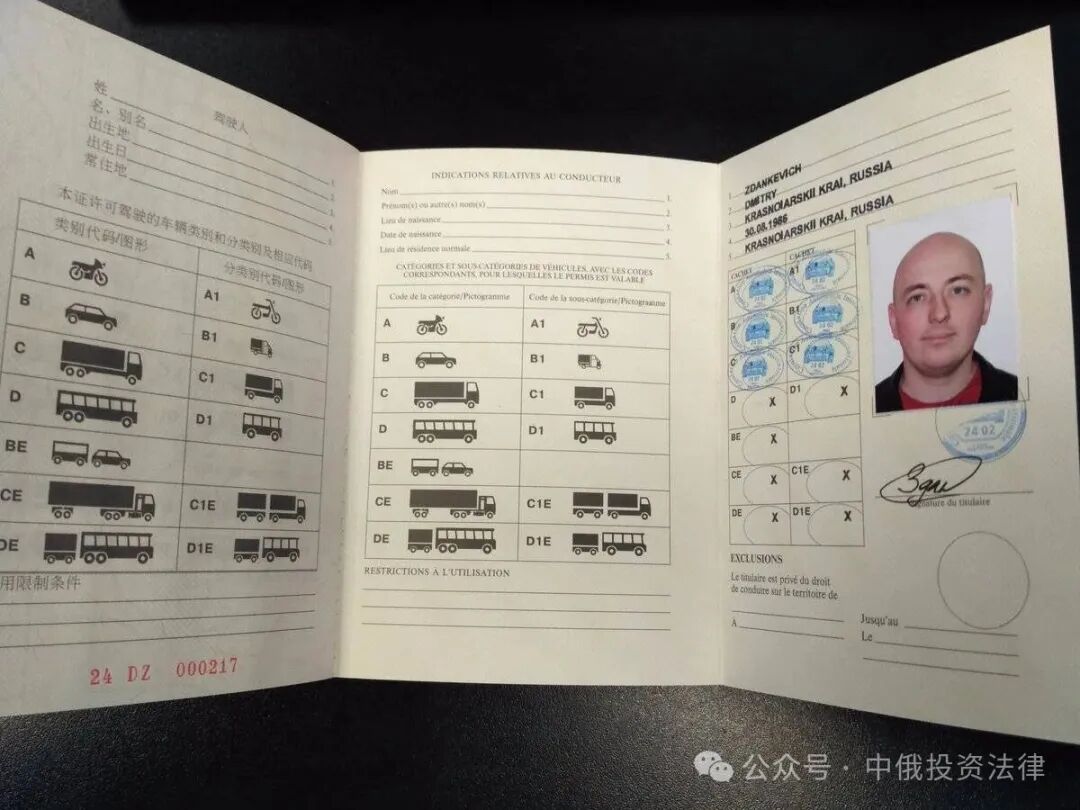 姓
驾驶人
名、别名
出生地
出生日
常住地
1.
2.
3.
4.
5.
本证许可驾驶的车辆类别和分类别及相应代码
类别代码/图形
分类别代码/图形
A
A1
B
B1
C
C1
D
D1
BE
CE
C1E
DE
D1E
用限制条件
24 DZ 000217
INDICATIONS RELATIVES AU CONDUCTEUR
Nom 1.
Prénom(s) ou autre(s) nom(s) 2.
Lieu de naissance 3.
Date de naissance 4.
Lieu de résidence normale 5.
CATÉGORIES ET SOUS-CATÉGORIES DE VÉHICULES, AVEC LES CODES
CORRESPONDANTS, POUR LESQUELLES LE PERMIS EST VALABLE
Code de la catégorie/Pictogramme
Code de la sous-catégorie/Pictogramme
A
A1
B
B1
C
C1
D
D1
BE
CE
C1E
DE
D1E
RESTRICTIONS À L'UTILISATION
1. ZDANKEVICH
2. DMITRY
3. KRASNOIARSKII KRAI, RUSSIA
4. 30.08.1986
5. KRASNOIARSKII KRAI, RUSSIA
CACHET
CACHET
A
24 02
A1
24 02
B
24 02
B1
24 02
C
24 02
C1
24 02
D X
D1 X
BE X
CE X
C1E X
DE X
D1E X
24 02
Signature du titulaire
EXCLUSIONS
Le titulaire est privé du droit
de conduire sur le territoire de
A
Jusqu'au
Le
公众号 · 中俄投资法律